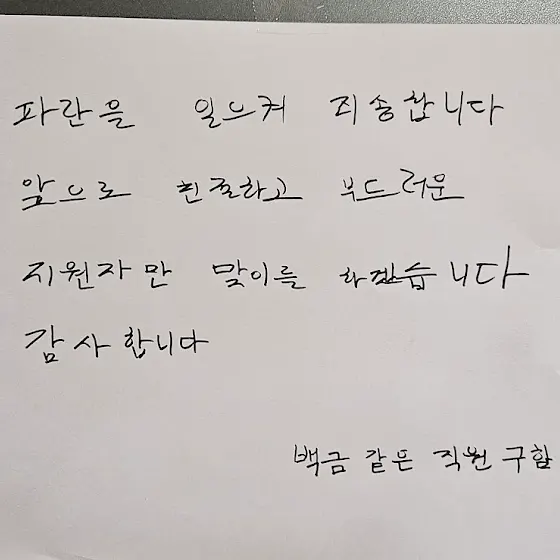 파란을 일으켜 죄송합니다
앞으로 친절하고 부드러운
지원자만 맞이를 하겠습니다
감사합니다
백금 같은 직원 구함